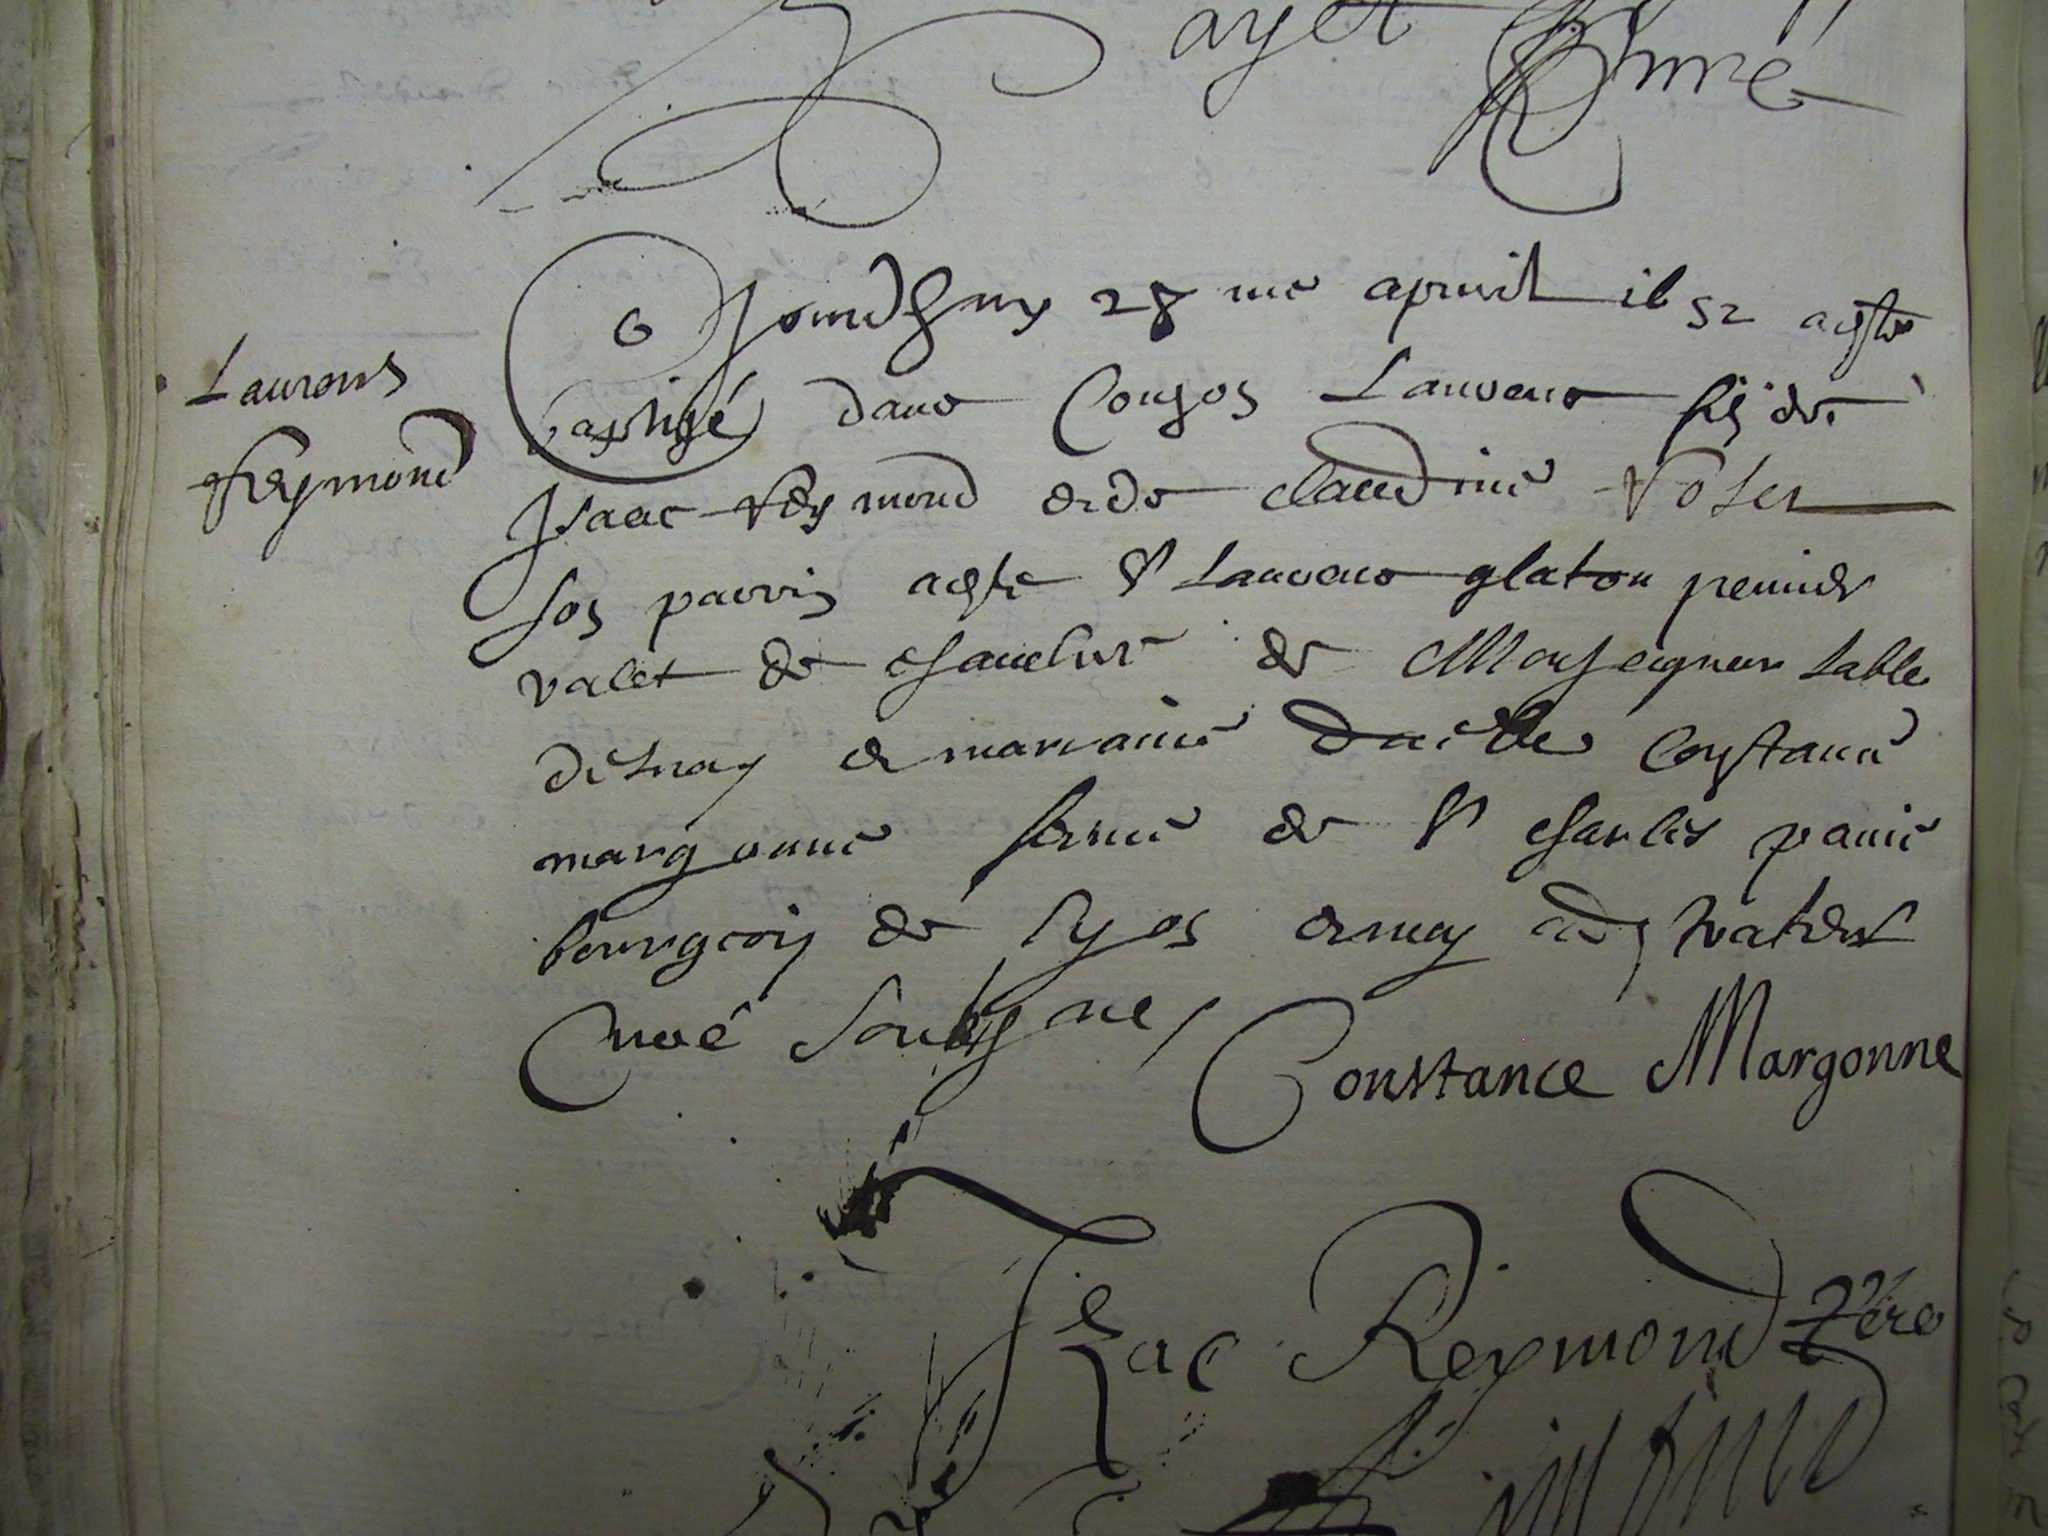 ayet Curé
Laurens
Reymond
Jourdhuy 28 me apuril il 52 a este
baptizé dans Couzon Laurens filz de
Isaac Reymond et de claudine
son parrin a este Sr Laurens glaton pemier
valet de chambre de Monseigneur Labbe
desnay et marraine dalle Constance
margonne feme de Sr charles
bourgeois de Lyon et moy
Curé soubsigne
Constance Margonne
Izac Reymond Pere